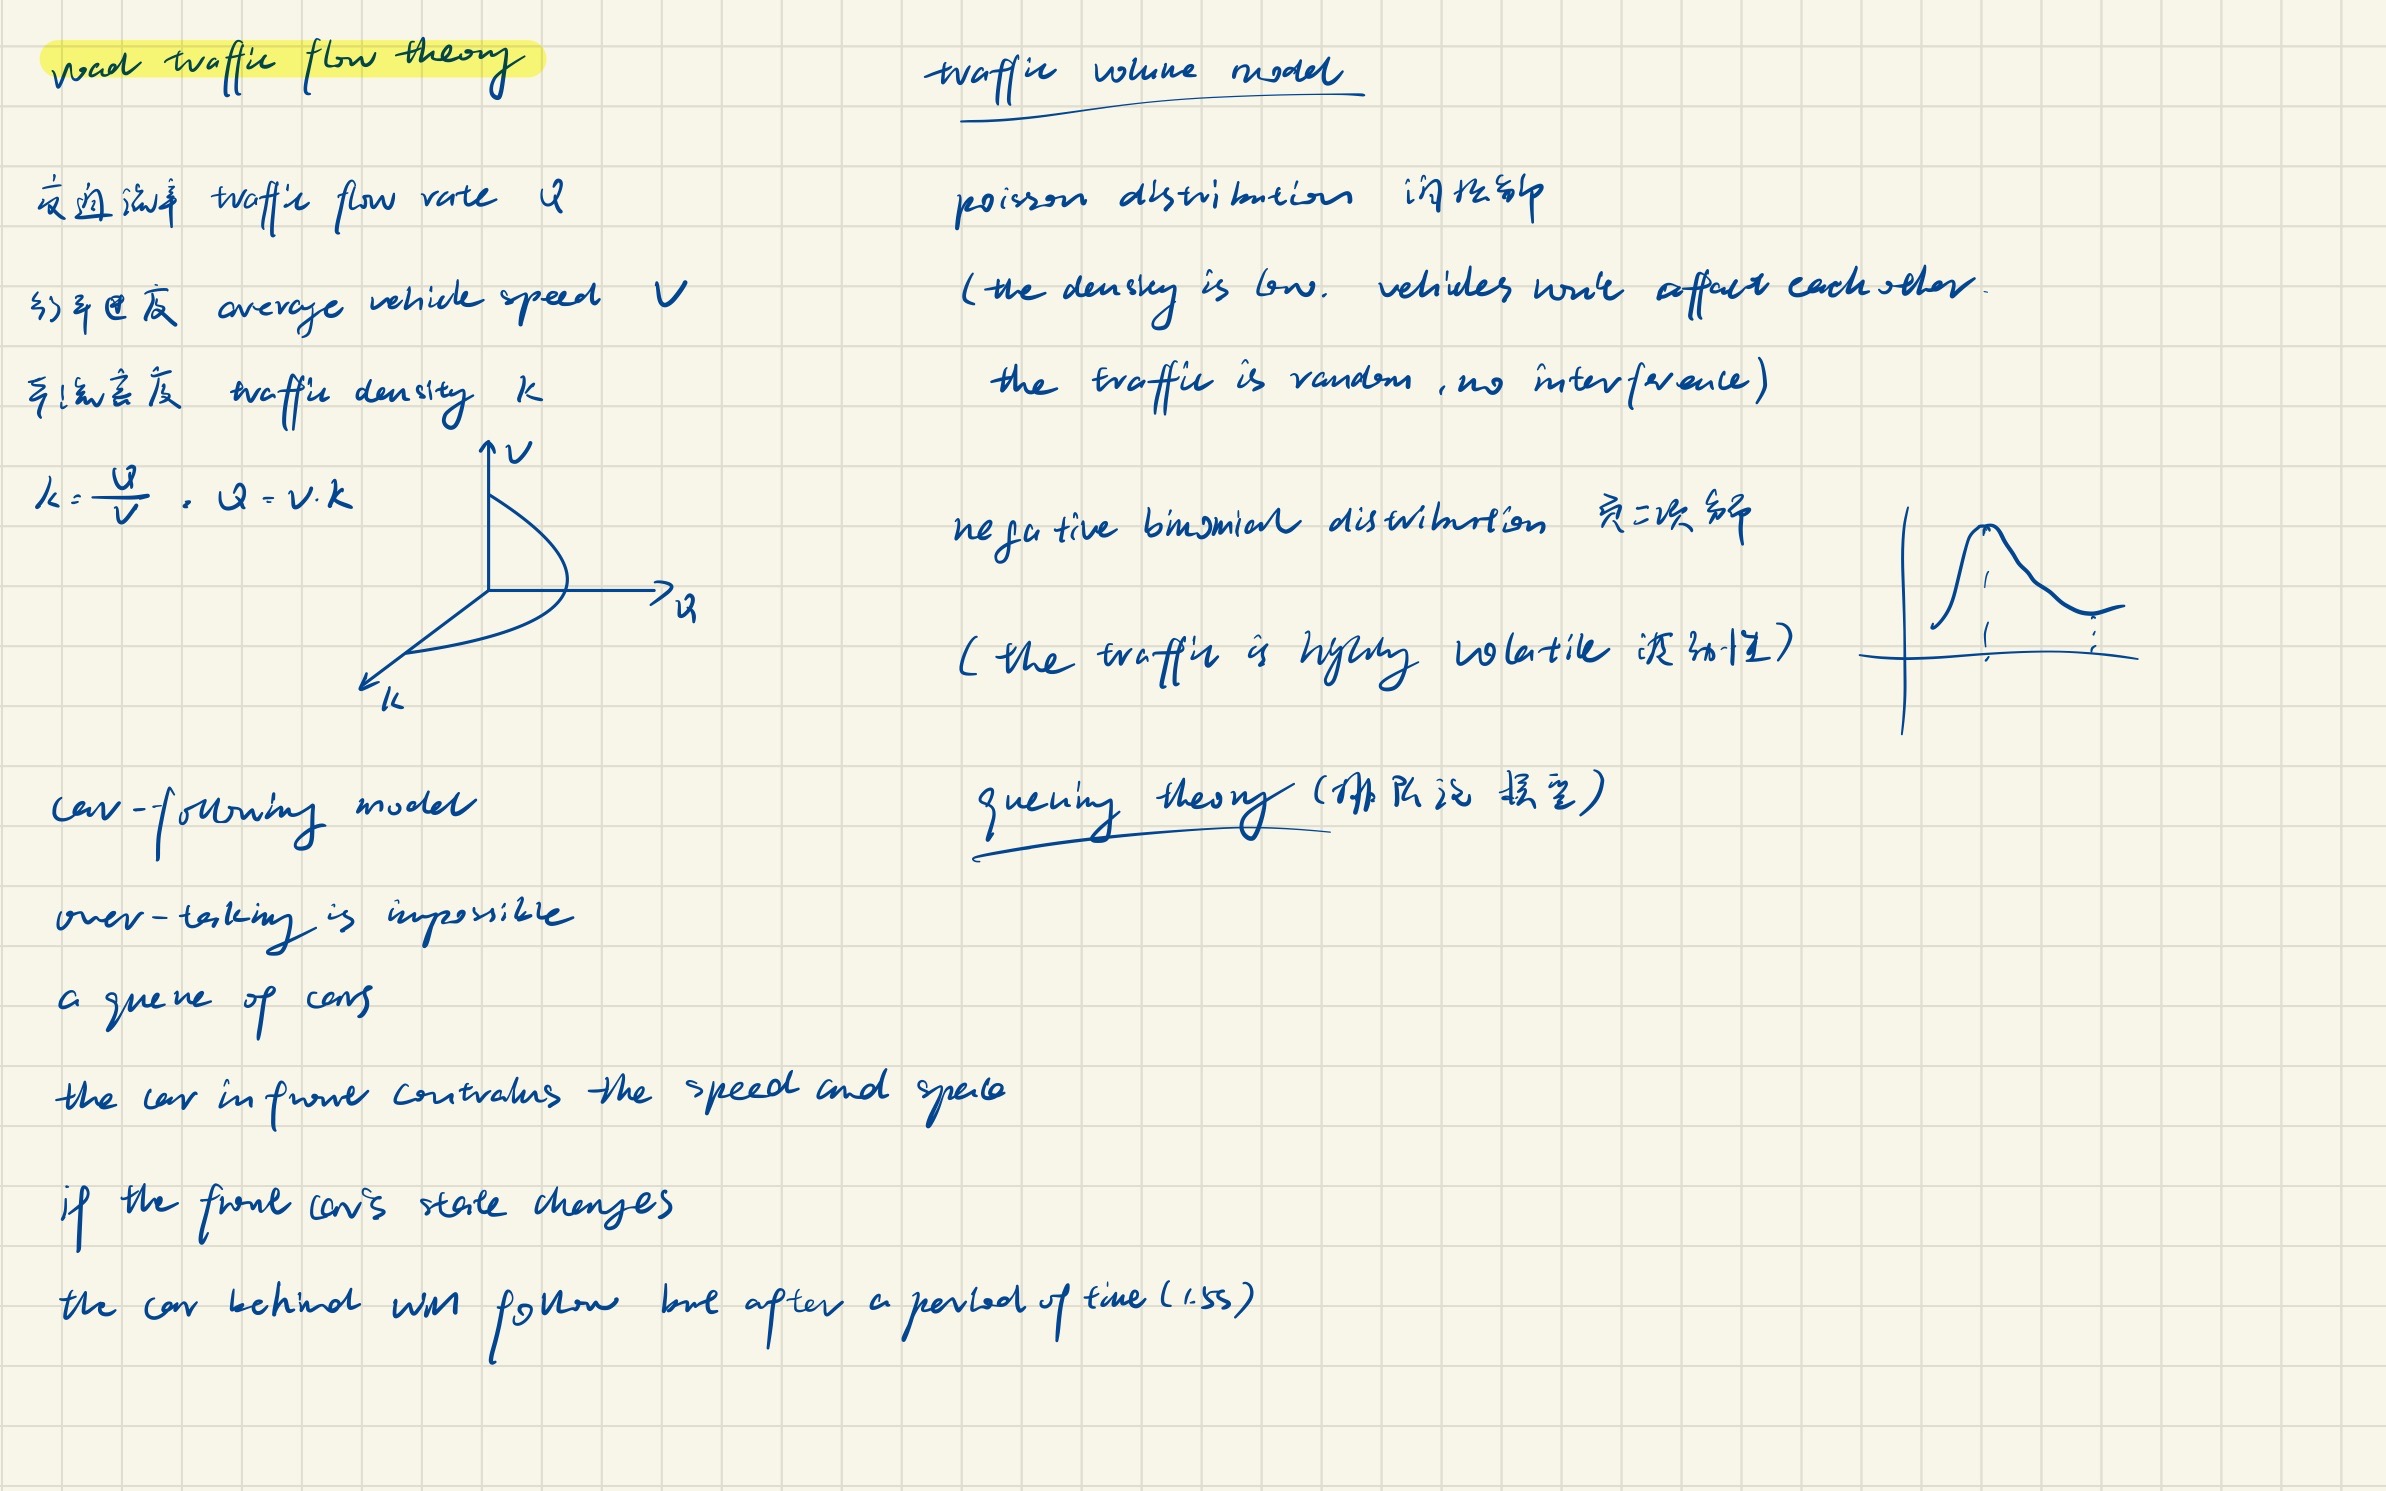 road traffic flow theory
交通流率 traffic flow rate Q
average vehicle speed V
车流密度 traffic density K
K = Q/V . Q = V·K
V
Q
K
car-following model
over-taking is impossible
a queue of cars
the car in front the speed and space
if the front car's state changes
the car behind will follow but after a period of time (1.5s)
traffic volume model
poisson distribution 泊松分布
(the density is low. vehicles won't affact each other.
the traffic is random, no interference)
negative binomial distribution 负二项分布
(the traffic is highly volatile 波动性)
queuing theory (排队论模型)